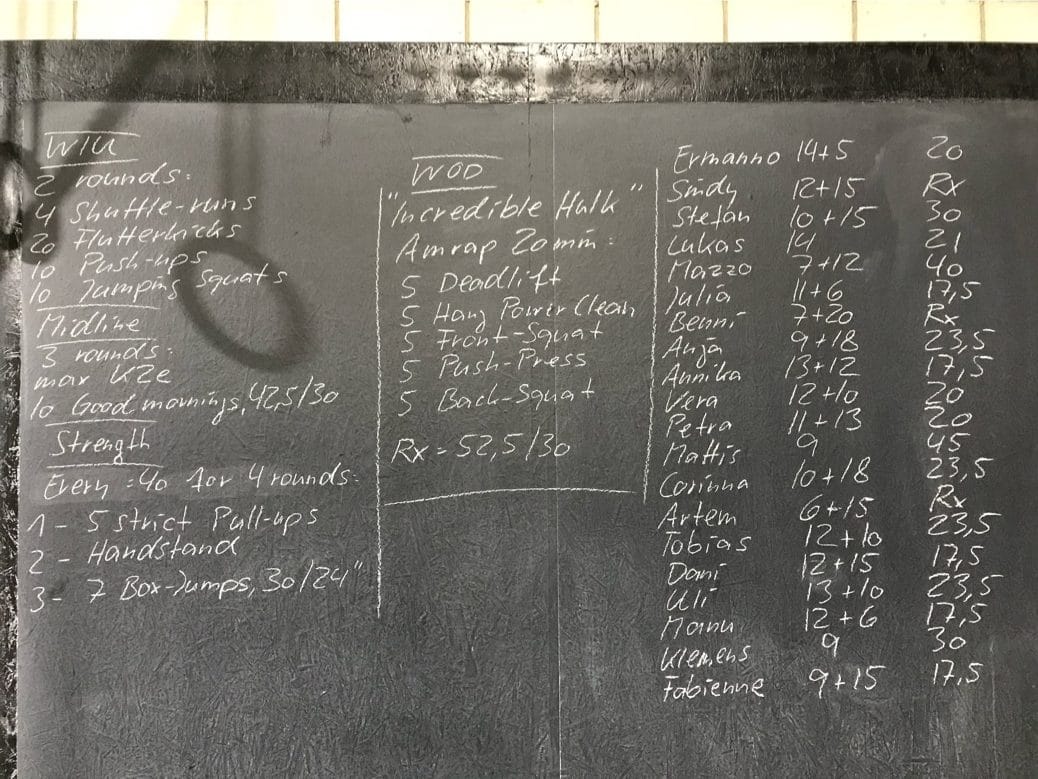 W/U
2 rounds:
4 Shuttle-runs
20 Flutterkicks
10 Push-ups
10 Jumping Squats
Midline
3 rounds:
max K2e
10 Good mornings, 42,5/30
Strength
Every :40 for 4 rounds:
1 - 5 strict Pull-ups
2 - Handstand
3 - 7 Box-Jumps, 30/24"
WOD
"Incredible Hulk"
Amrap 20min:
5 Deadlift
5 Hang Power Clean
5 Front-Squat
5 Push-Press
5 Back-Squat
Rx = 52,5/30
Ermanno 14+5 20
Sindy 12+15 Rx
Stefan 10+15 30
Lukas 14 21
Mazzo 7+12 40
Julia 11+6 17,5
Benni 7+20 Rx
Anja 9+18 23,5
Annika 13+12 17,5
Vera 12+10 20
Petra 11+13 20
Mattis 9 45
Corinna 10+18 23,5
Artem 6+15 Rx
Tobias 12+10 23,5
Dani 12+15 17,5
Uli 13+10 23,5
Manu 12+6 17,5
Klemens 9 30
Fabienne 9+15 17,5